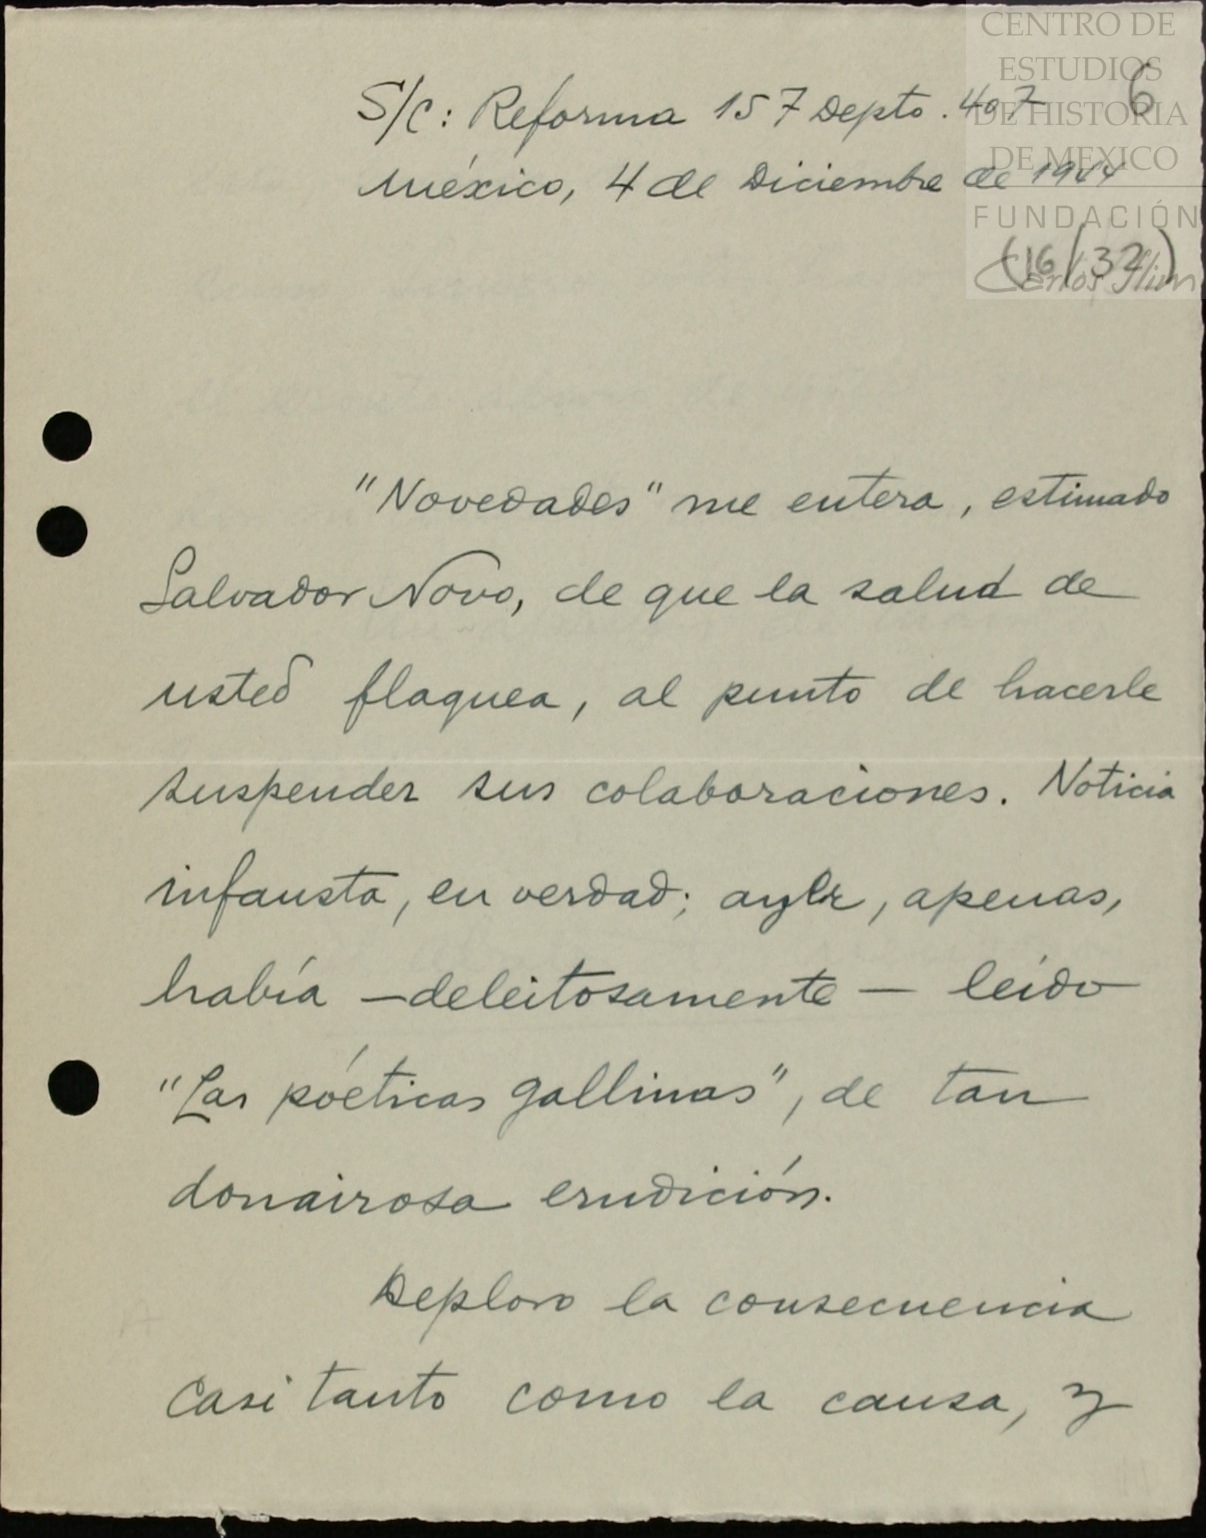 CENTRO DE
ESTUDIOS
DE HISTORIA
DE MEXICO
FUNDACIÓN
Carlos Slim
6
S/C: Reforma 157 Depto. 407
México, 4 de Diciembre de 1944
(16/32)
"Novedades" me entera, estimado
Salvador Novo, de que la salud de
usted flaquea, al punto de hacerle
suspender sus colaboraciones. Noticia
infausta, en verdad; ayer, apenas,
había —deleitosamente— leído
"Las póeticas gallinas", de tan
donairosa erudición.
Deploro la consecuencia
casi tanto como la causa, y